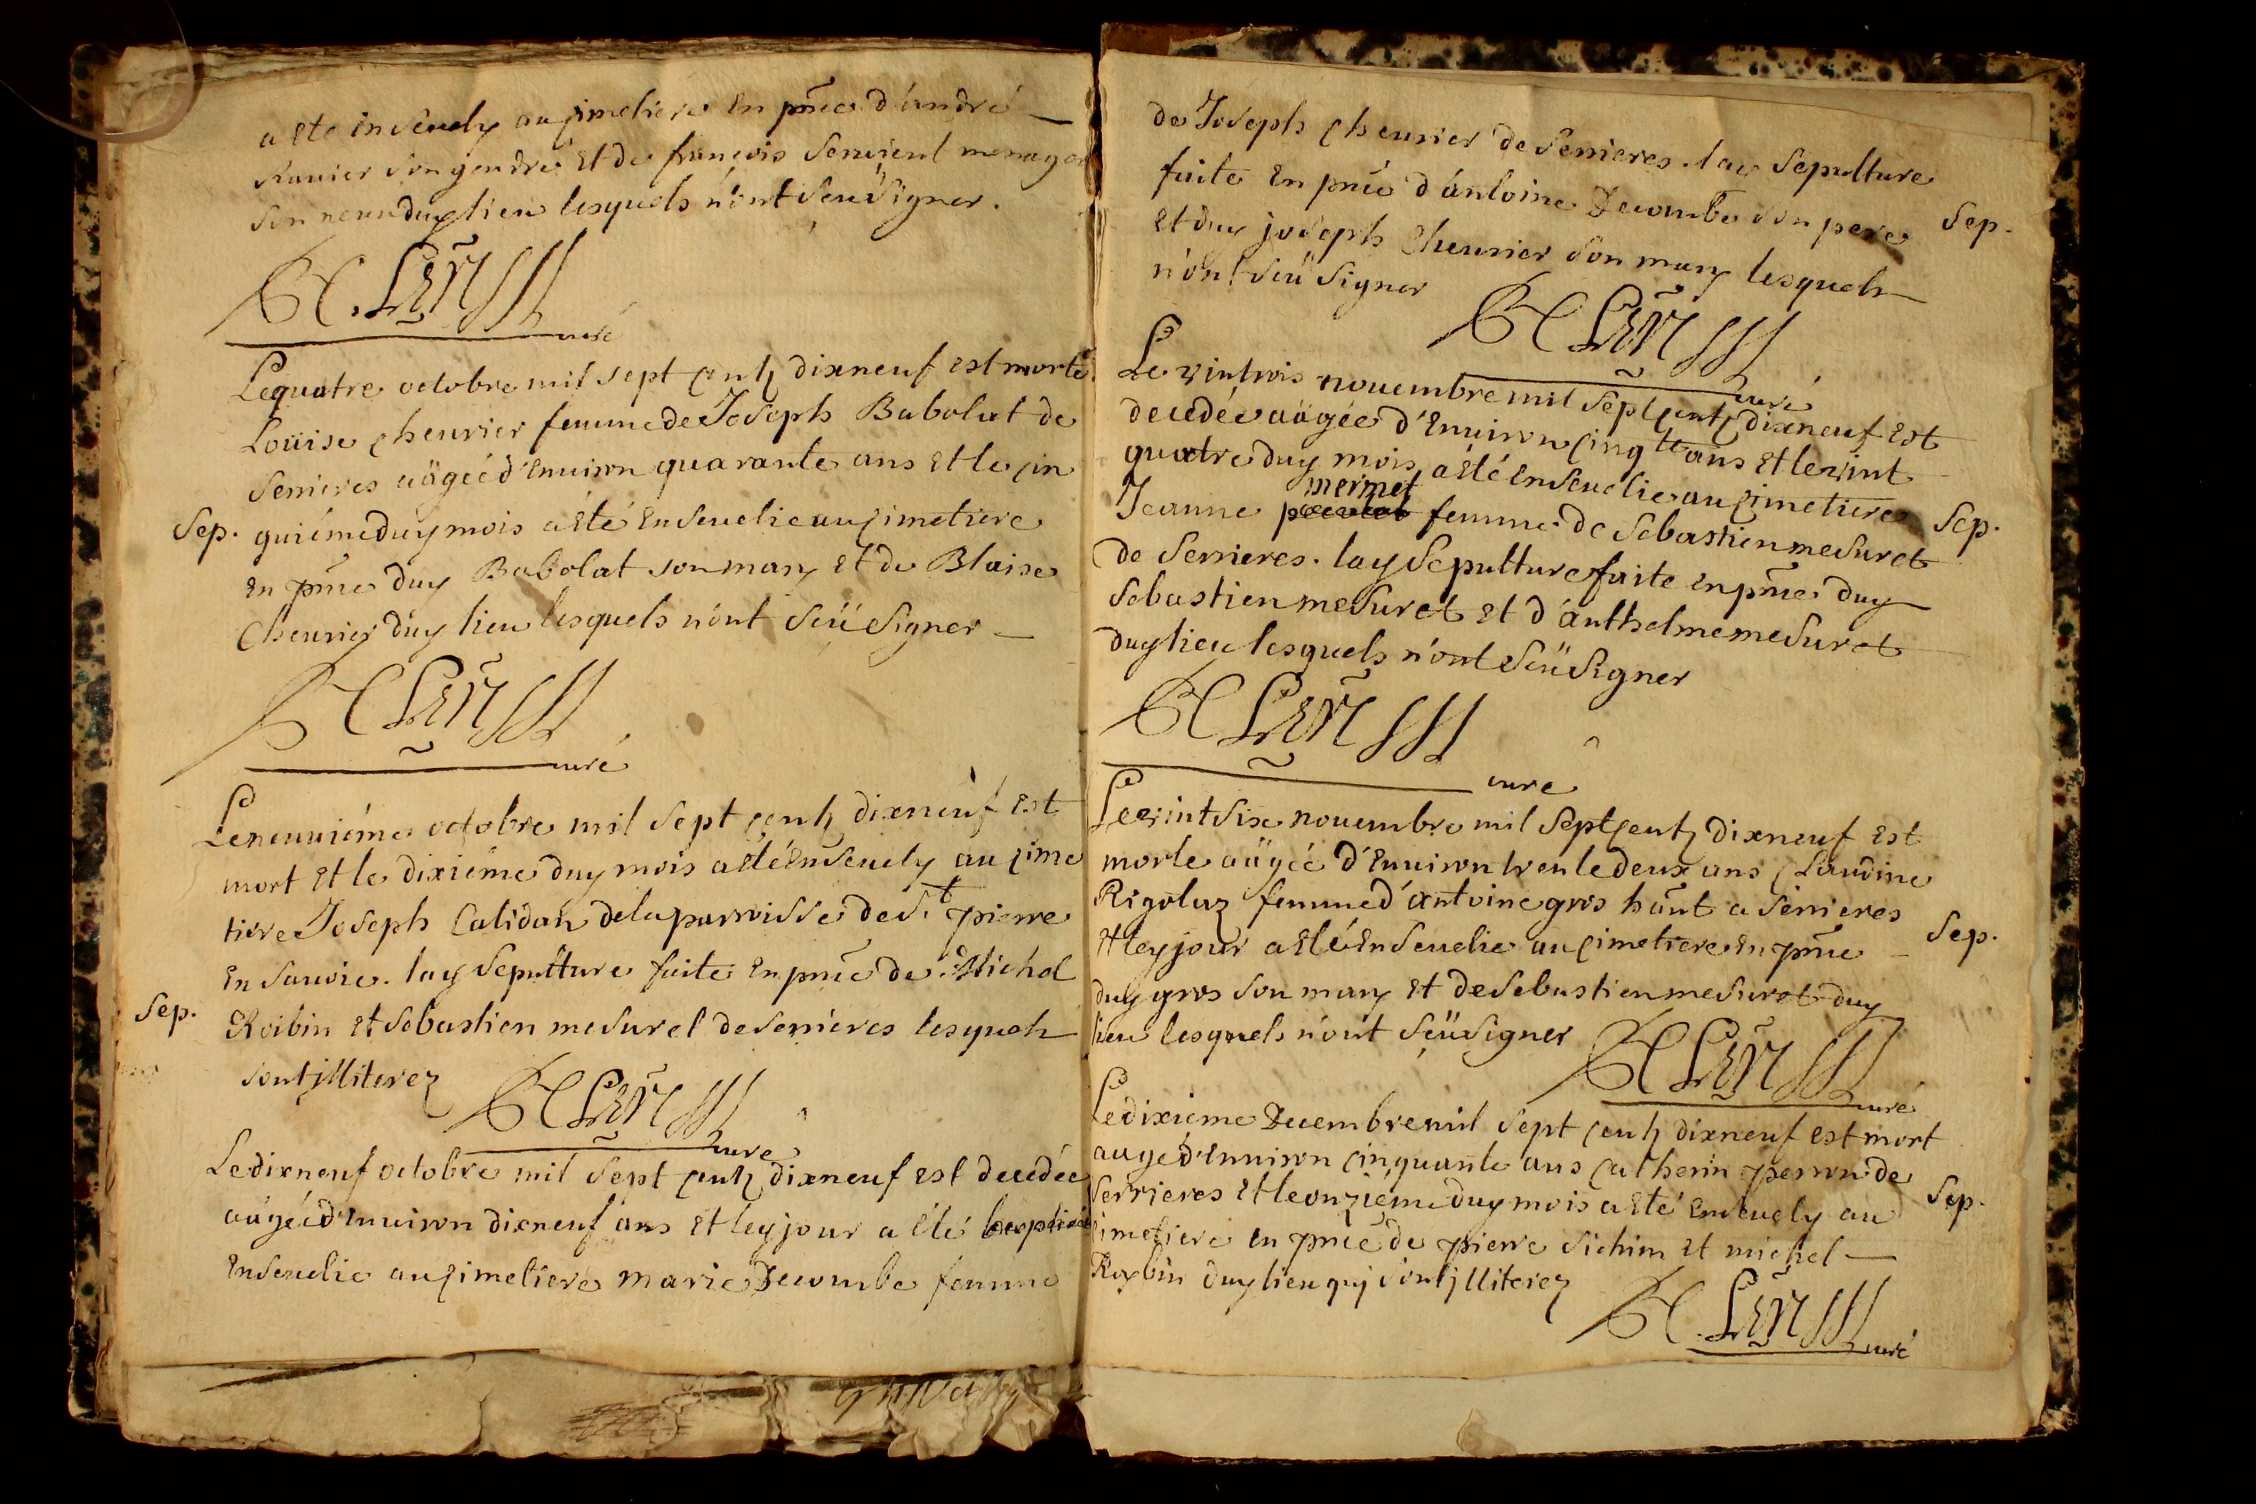 a ete enseuely au cimetiere en pnce d'andré
Rauier son gendre et de françois seruient menager
son neueu duy lieu lesquels n'ont seu signer.
curé
Le quatre octobre mil sept centz dixneuf est morte
Loüise cheurier femme de Joseph Babolat de
Serrieres aägée d'enuiron quarante ans et le cin
Sep. quiéme duy mois a esté enseuelie au cimetiere
en pnce duy Babolat son mary et de Blaise
Cheurier duy lieu lesquels n'ont seü signer
curé
Le neuuiéme octobre mil sept centz dixneuf est
mort et le dixiéme duy mois a eté enseuely au cime
tiere Joseph Calidan de la parroisse de St pierre
en sauoie. lay sepulture faite en pnce de Michel
Sep. Roibin et sebastien mesuret de serrieres lesquels
sont jlliterez
curé
Le dixneuf octobre mil sept centz dixneuf est decedée
aägée d'enuiron dixneuf ans et ley jour a été
enseuelie au cimetiere marie Decombe femme
de Joseph cheurier de serrieres. lay sepulture
faite en pnce d'antoine Decombe son pere
Sep.
et duy joseph cheurier son mary lesquels
n'ont seü signer
curé
Le vintrois nouembre mil sept centz dixneuf est
decedée aägée d'enuiron cinq te ans et le vint
quatre duy mois a eté enseuelie au cimetiere
mermet
Jeanne femme de sebastien mesuret
Sep.
de serrieres. lay sepulture faite en pnce duy
sebastien mesuret et d'anthelme mesuret
duy lieu lesquels n'ont seü signer
curé
Le vint six nouembre mil sept centz dixneuf est
morte aägée d'enuiron trente deux ans Claudine
Rigolaz femme d'antoine gros hant a serrieres
et ley jour a eté enseuelie au cimetiere en pnce
Sep.
duy gros son mary et de sebastien mesuret duy
lieu lesquels n'ont seü signer
curé
Le dixiéme Decembre mil sept centz dixneuf est mort
aagé d'enuiron cinquante ans Catherin perron de
serrieres et le onziéme duy mois a eté enseuely au
Sep.
cimetiere en pnce de pierre sichim et michel
Roybin duy lieu quj sont jlliterez
curé